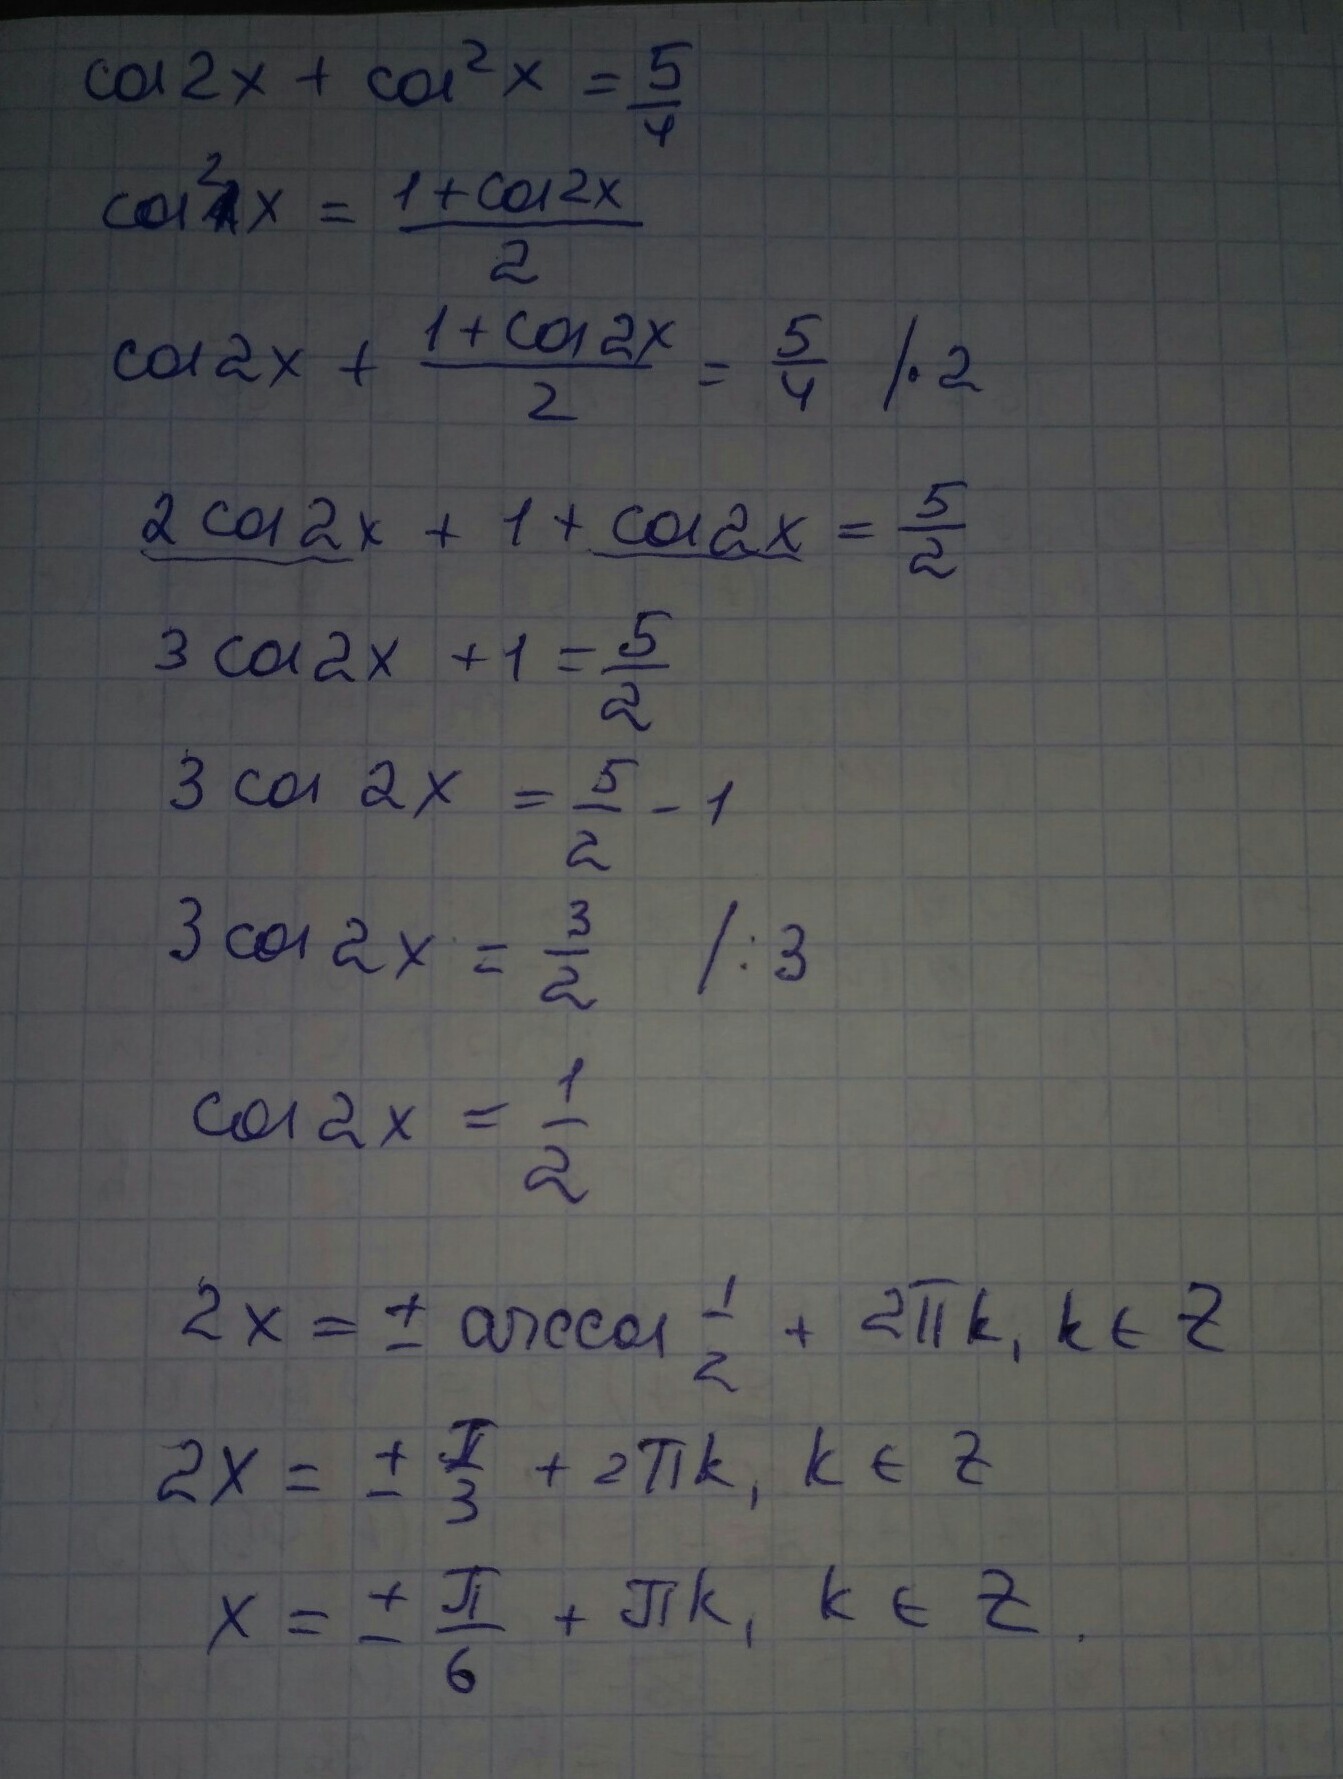 cos2x + cos²x = 5/4
cos²x = (1+cos2x)/2
cos2x + (1+cos2x)/2 = 5/4 /·2
2cos2x + 1 + cos2x = 5/2
3cos2x + 1 = 5/2
3cos2x = 5/2 - 1
3cos2x = 3/2 /:3
cos2x = 1/2
2x = ± arccos 1/2 + 2πk, k ∈ Z
2x = ± π/3 + 2πk, k ∈ Z
x = ± π/6 + πk, k ∈ Z.